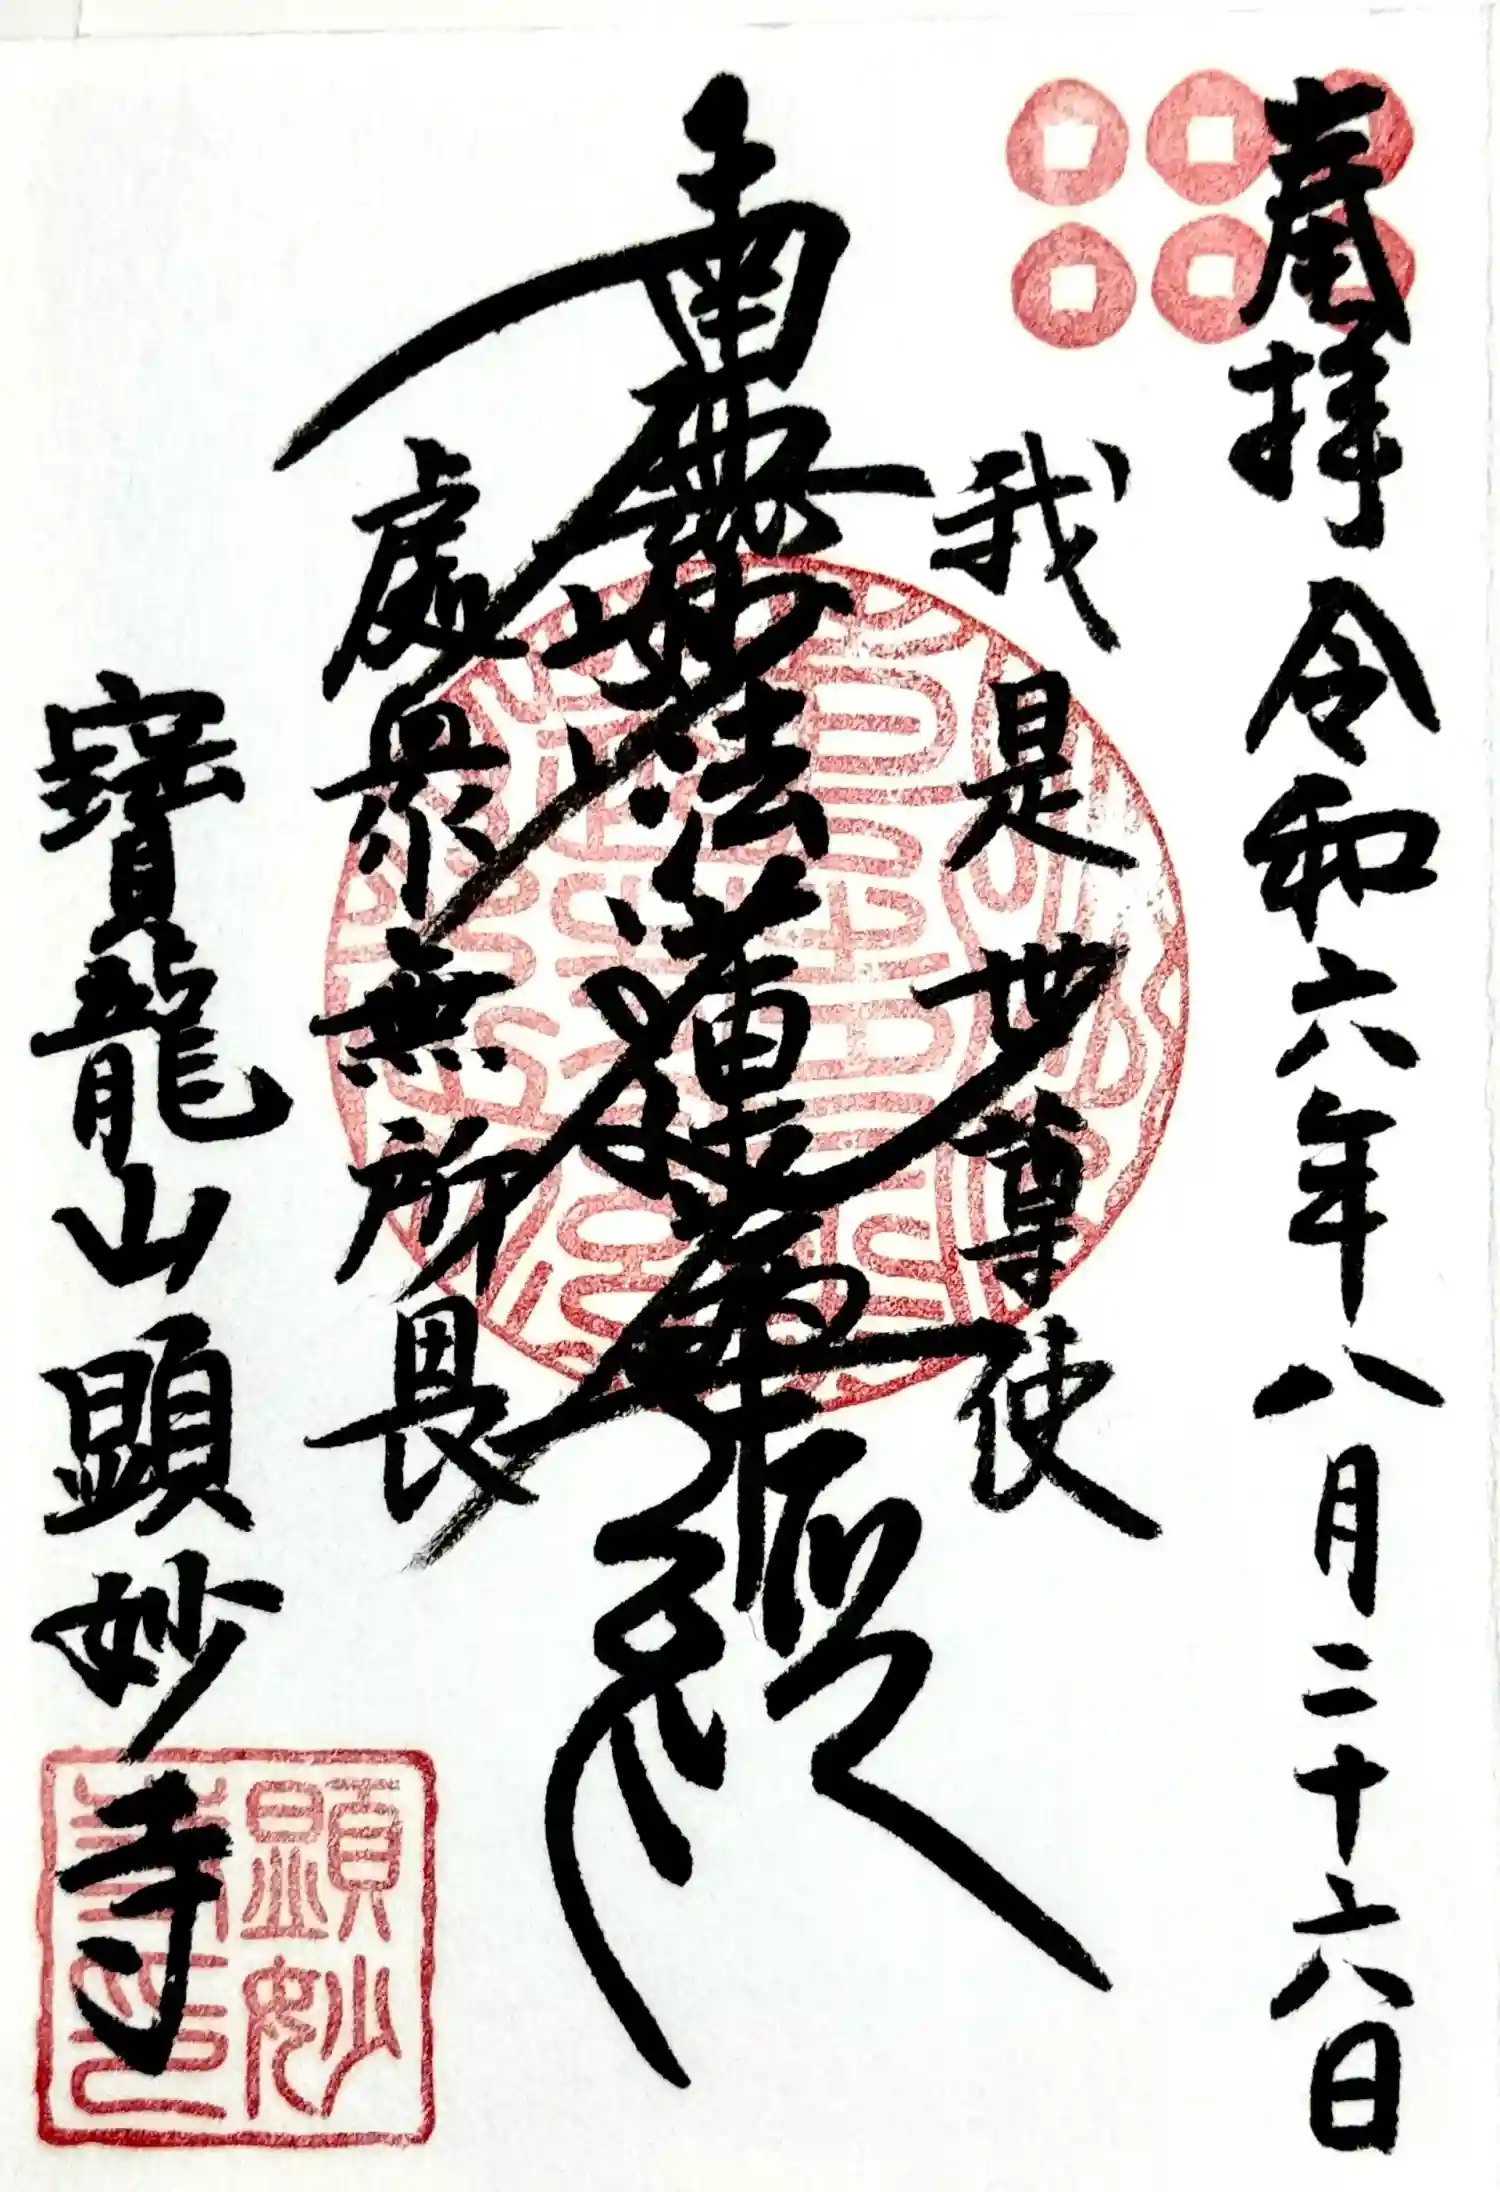 奉拝 令和六年八月二十六日
我是世尊使
南無妙法蓮華経
處衆無所畏
寶龍山顕妙寺
顕妙寺印